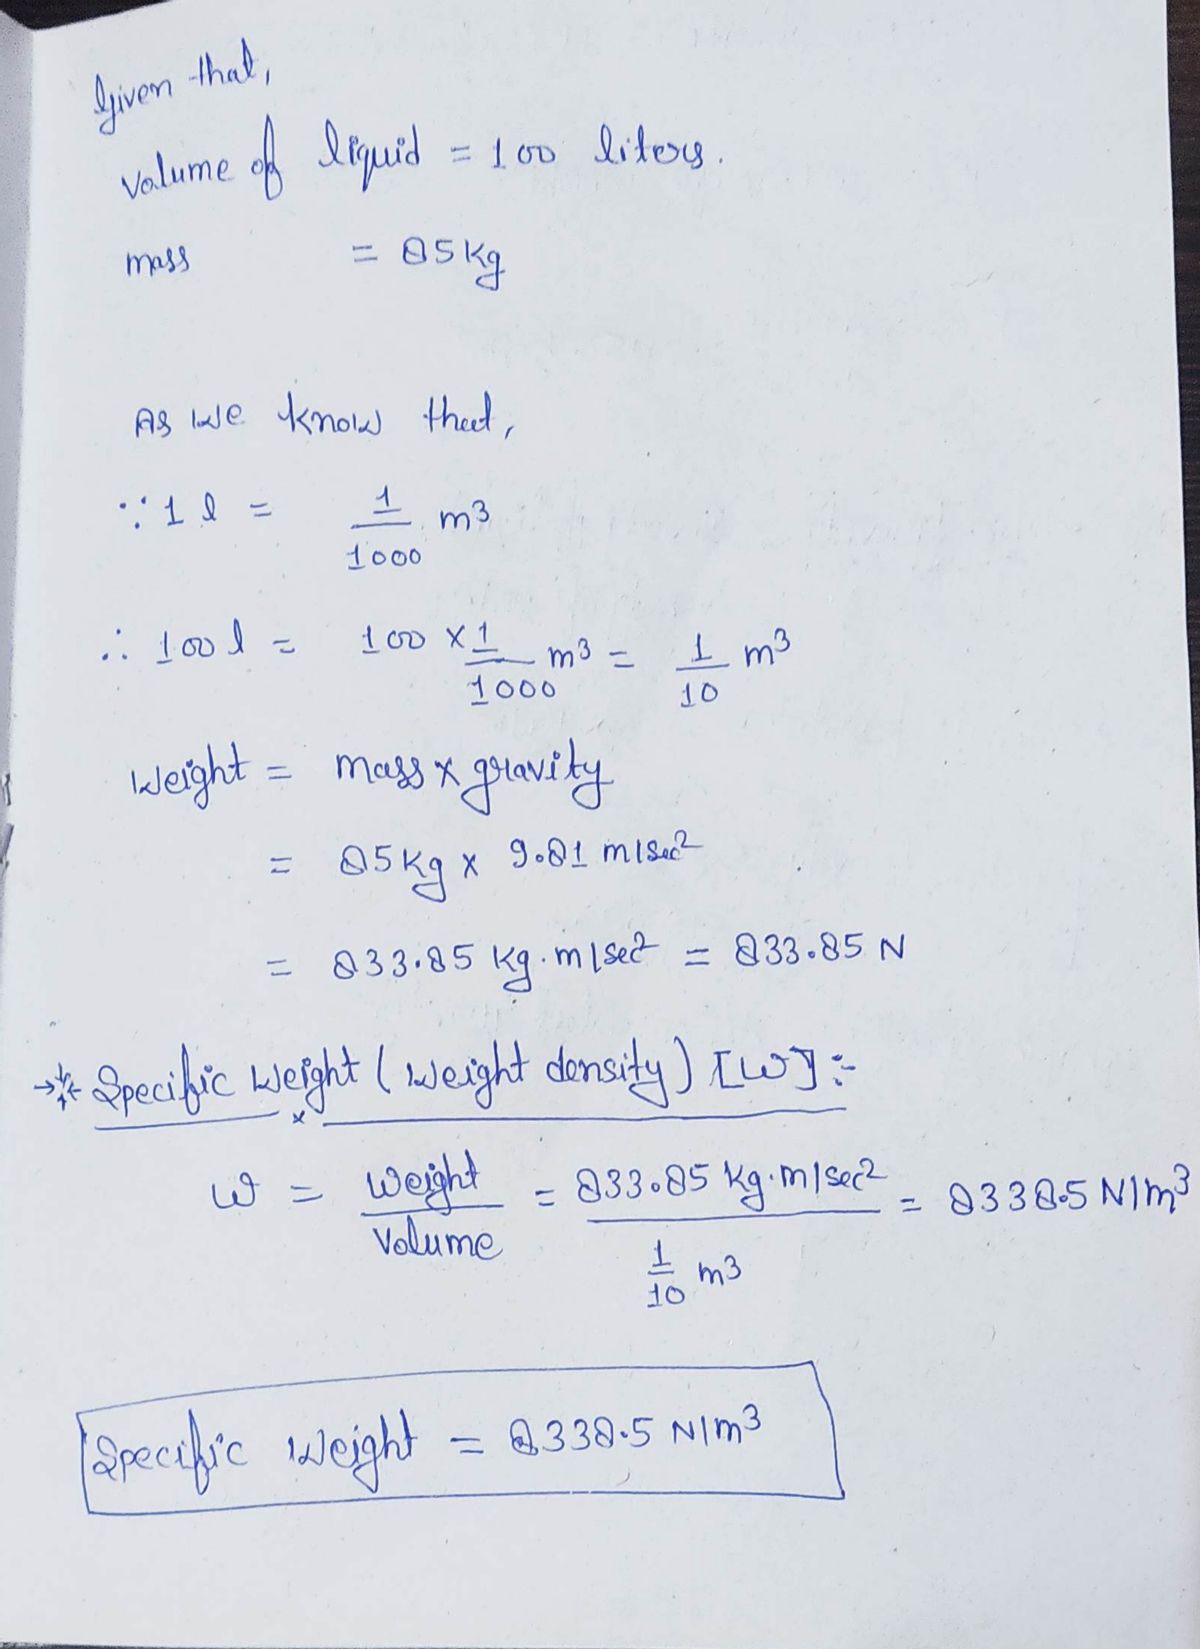 Given that,
Volume of liquid = 100 liters.
mass = 85 kg
As we know that,
∵ 1 l = 1/1000 m³
∴ 100 l = 100 × 1/1000 m³ = 1/10 m³
Weight = mass × gravity
= 85 kg × 9.81 m/sec²
= 833.85 kg.m/sec² = 833.85 N
Specific Weight (Weight density) [W] :-
W = Weight/Volume = 833.85 kg.m/sec² / 1/10 m³ = 8338.5 N/m³
Specific Weight = 8338.5 N/m³